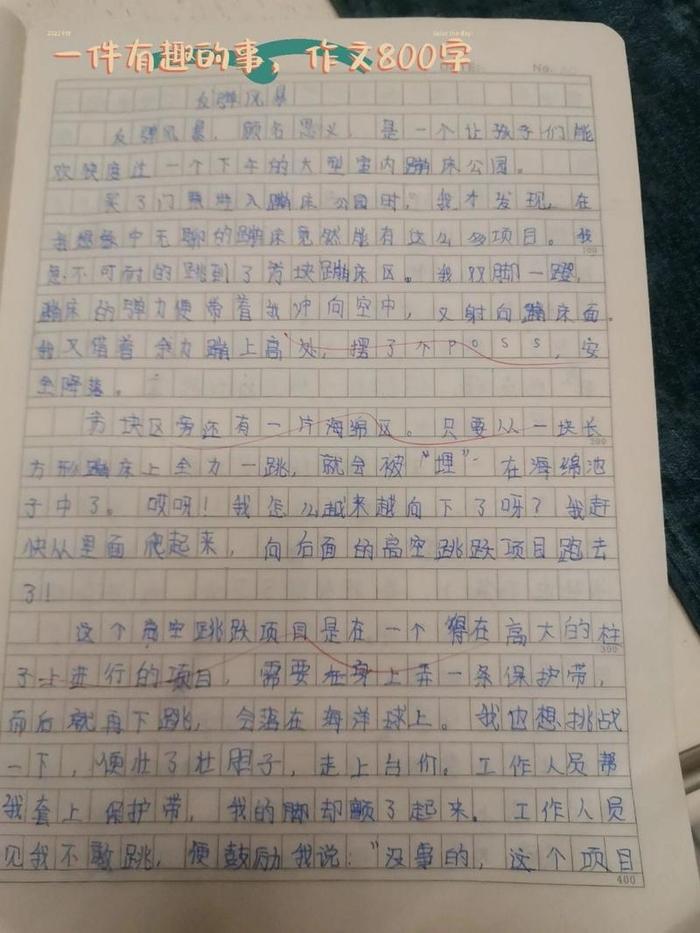 一件有趣的事，作文800字
No.
反弹风暴
反弹风暴，顾名思义，是一个让孩子们能
欢快度过一个下午的大型室内蹦床公园。
买了门票进入蹦床公园时，我才发现，在
我想象中无聊的蹦床竟然能有这么多项目。我
急不可耐的跳到了方块蹦床区。我双脚一蹬，
100
蹦床的弹力便带着我冲向空中，又射向蹦床面。
我又借着余力蹦上高处，摆了个poss，安
全降落。
方块区旁还有一片海绵区。只要从一块长
200
方形蹦床上全力一跳，就会被“埋”在海绵池
子中了。哎呀！我怎么越来越向下了呀？我赶
快从里面爬起来，向后面的高空跳跃项目跑去
了！
这个高空跳跃项目是在一个得在高大的柱
300
子上进行的项目，需要在身上弄一条保护带，
而后就再下跳，会落在海洋球上。我也想挑战
一下，便壮了壮胆子，走上台阶。工作人员帮
我套上保护带，我的脚却颤了起来。工作人员
见我不敢跳，便鼓励我说：“没事的，这个项目
400